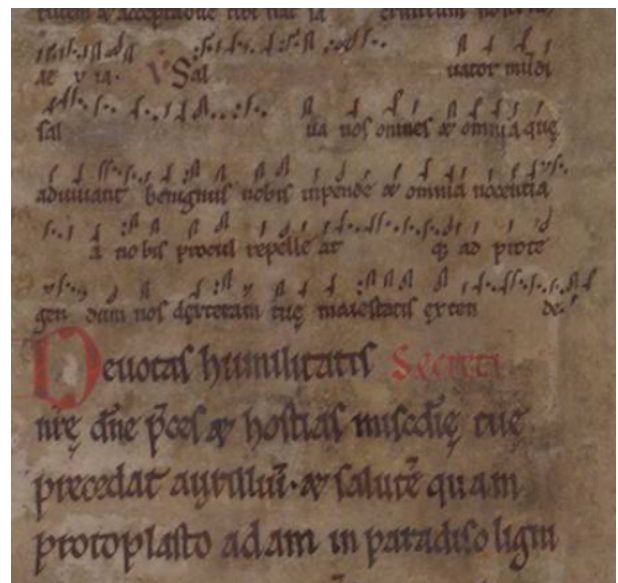 tutem & acceptabile tibi fiat
ae v ia. V Sal uator mūdi
sal ua nos omnes & omnia quę
adiuuant benignus nobis inpende & omnia nocentia
a nobis procul repelle at q; ad prote
gen dum nos dexteram tuę maiestatis exten de.
Deuotas humilitatis Secreta
nr̄ę dn̄e p̄ces & hostias mis̄c̄dię tuę
precedat auxiliū. & salutē quam
protoplasto adam in paradiso ligni